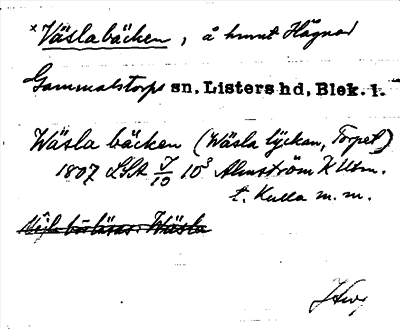 ×Väslabäcken, å
Gammalstorps sn, Listers hd, Blek. l.
Wäsla bäcken (Wäsla lyckan, Torpet)
1807 LSA J/10 10³ Almström K Utm.
t. Kulla m. m.
bör läsas: Wäsla